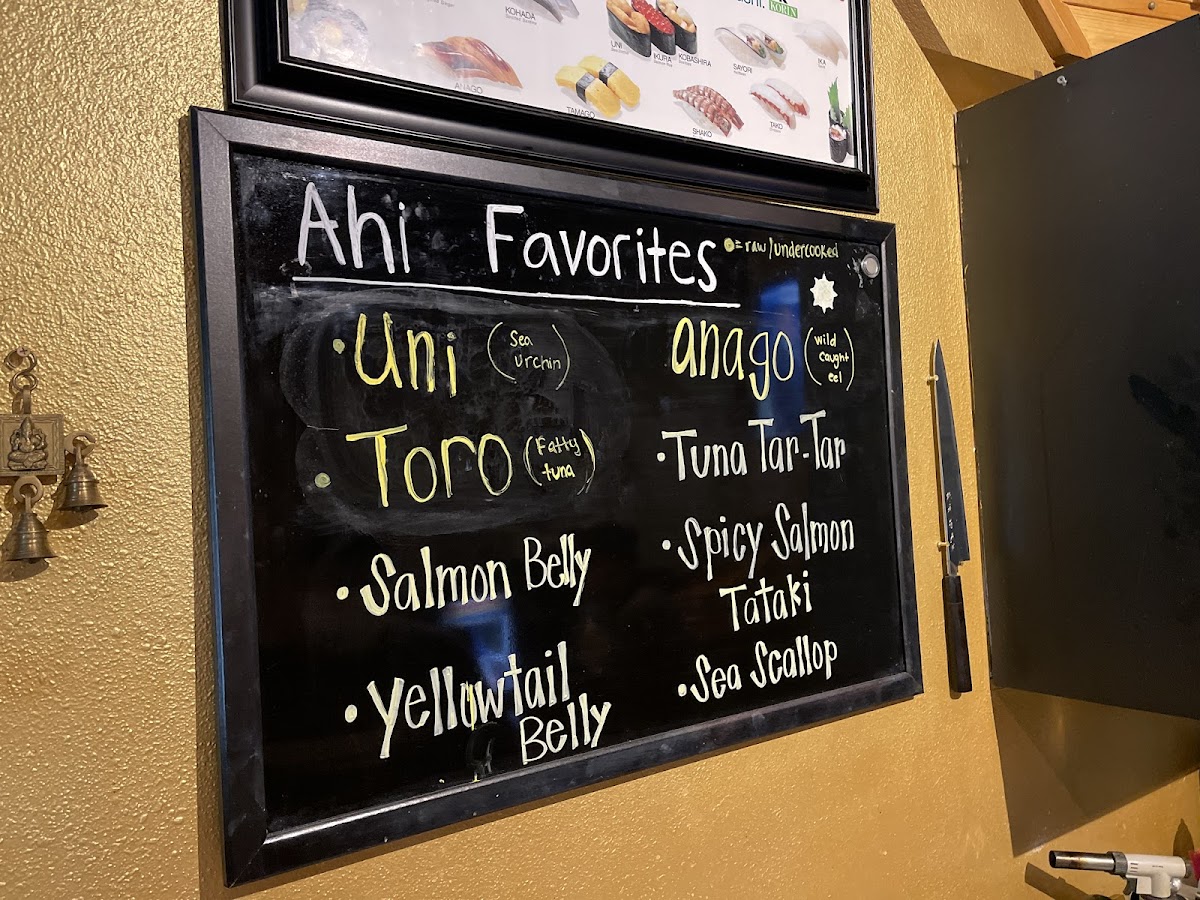 KOHADA
UNI
IKURA
KOBASHIRA
KORIN
SAYORI
IKA
ANAGO
TAMAGO
SHAKO
TAKO
Ahi Favorites
•= raw/undercooked
•Uni (Sea urchin)
•Toro (Fatty tuna)
•Salmon Belly
•Yellowtail
Belly
anago (wild caught eel)
•Tuna Tar-Tar
•Spicy Salmon
Tataki
•Sea Scallop